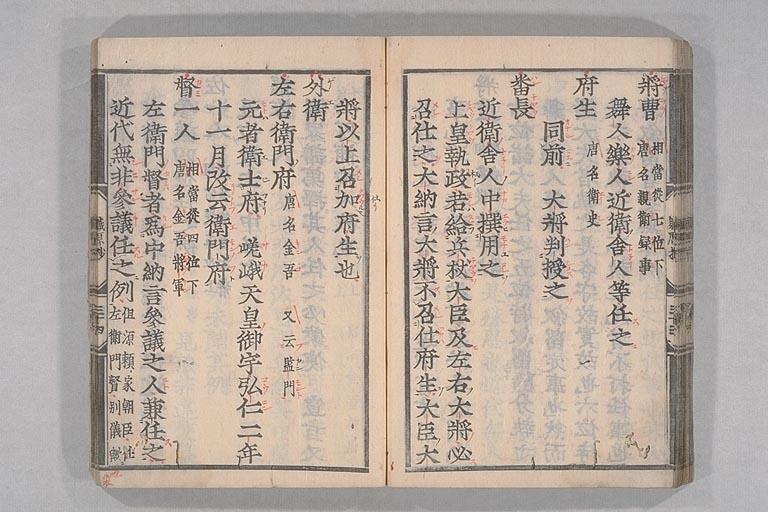 將曹 相當從七位下
唐名親衛録事
舞人樂人近衛舎人等任之
府生 唐名衛史
同前 大將判授之
番長
近衛舎人中撰用之
上皇執政若給兵杖大臣及左右大將必
召仕之大納言大將不召仕府生大臣大
將以上召加府生也
外衛
左右衛門府 唐名金吾 又云監門
元者衛士府 嵯峨天皇御宇弘仁二年
十一月改云衛門府
督一人 相當從四位下
唐名金吾將軍
左衛門督者爲中納言參議之人兼任之
近代無非參議任之例 但源頼家朝臣任
左衛門督別儀歟